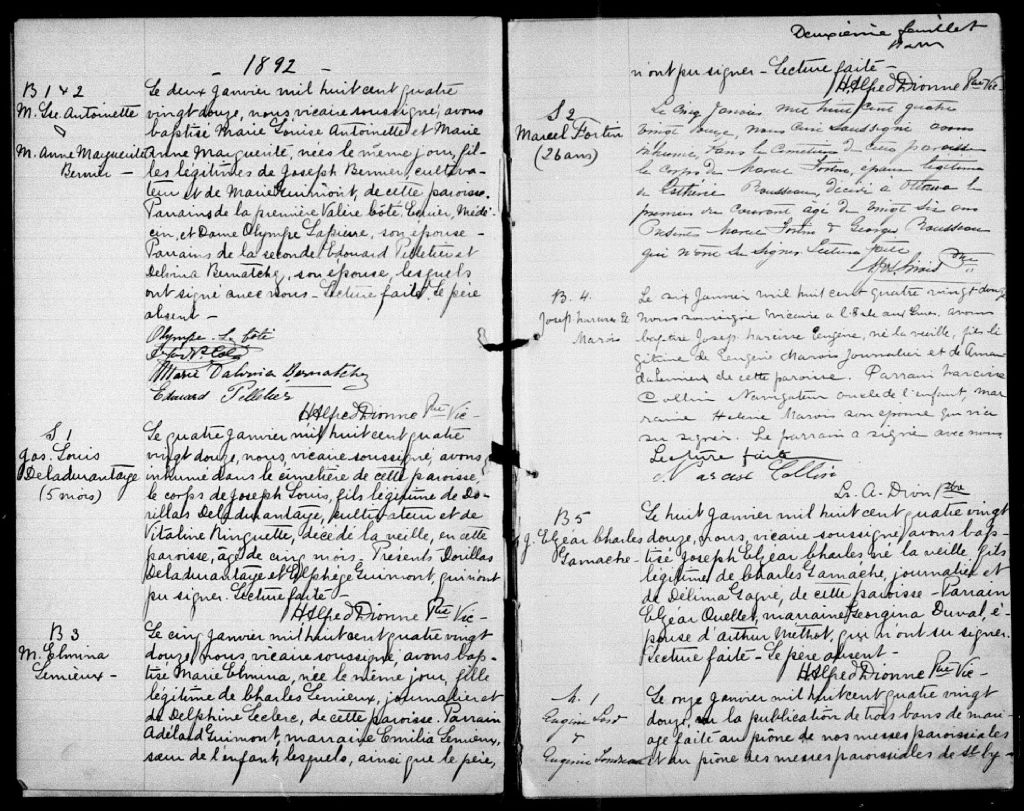 - 1892 -
B 1 & 2
M. Lse. Antoinette
M. Anne Marguerite
Bernier -
Le deux Janvier mil huit cent quatre
vingt douze, nous vicaire soussigné, avons
baptisé Marie Louise Antoinette et Marie
Anne Marguerite, nées le même jour, fil-
les légitimes de Joseph Bernier, cultiva-
teur et de Marie Guimont, de cette paroisse.
Parrains de la première Valère Côté, Ecuier, Méde-
cin, et Dame Olympe Lapierre, son épouse -
Parrains de la seconde Edouard Pelletier et
Delvina Bernatchy, son épouse, lesquels
ont signé avec nous - Lecture faite. Le père
absent -
Olympe L. Côté
Marie Dalvina Bernatchy
Edouard Pelletier
H Alfred Dionne Ptre Vic -
S 1
Jos. Louis
Deladurantaye
(5 mois)
Le quatre Janvier mil huit cent quatre
vingt douze, nous vicaire soussigné, avons
inhumé dans le cimetière de cette paroisse,
le corps de Joseph Louis, fils légitime de Do-
rillas Deladurantaye, cultivateur et de
Vitaline Ringuette, décédé la veille, en cette
paroisse, âgé de cinq mois - Présents Dorillas
Deladurantaye et Elphège Guimont, qui n'ont
pu signer. Lecture faite -
H Alfred Dionne Ptre Vic -
B 3
M. Elmina
Lemieux -
Le cinq Janvier mil huit cent quatre vingt
douze, nous vicaire soussigné, avons bap-
tisé Marie Elmina, née le même jour, fille
légitime de Charles Lemieux, journalier et
de Delphine Leclerc, de cette paroisse. Parrain
Adélard Guimont, marraine Emilia Lemieux,
sœur de l'enfant, lesquels, ainsi que le père,
Deuxième feuillet
n'ont pu signer - Lecture faite -
H Alfred Dionne Ptre Vic -
S 2
Marcel Fortin
(26 ans)
Le cinq Janvier mil huit cent quatre
vingt douze, nous curé soussigné avons
inhumé, dans le cimetière de cette paroisse
le corps de Marcel Fortin, époux légitime
de Rousseau, décédé à Ottawa le
premier du courant âgé de vingt six ans
Présents Marcel Fortin & Georges Rousseau
qui n'ont su signer. Lecture faite
Ptre
B. 4.
Josep. narcisse E.
Marois
Le six Janvier mil huit cent quatre vingt douze
nous soussigné vicaire à l'Isle aux Grues, avons
baptisé Joseph narcisse Eugène, né la veille, fils lé
gitime de Eugène Marois Journalier et de Aman
da de cette paroisse. Parrain narcisse
Collin Navigateur oncle de l'enfant, mar
raine Helene Marois son épouse qui n'a
su signer. Le parrain a signé avec nous
Lecture faite
Narcisse Collin
Ls. A. Dion Ptre
B 5
J. Elgéar Charles
Gamache -
Le huit Janvier mil huit cent quatre vingt
douze, nous, vicaire soussigné avons bap-
tisé Joseph Elgéar Charles né la veille, fils
légitime de Charles Gamache, journalier et
de Délima Gagné, de cette paroisse - Parrain
Elgéar Ouellet, marraine Georgina Duval, é-
pouse d'Arthur Méthot, qui n'ont su signer.
Lecture faite - Le père absent -
H Alfred Dionne Ptre Vic -
M. 1
Eugène
&
Eugénie
Le onze Janvier mil huit cent quatre vingt
douze, vu la publication de trois bans de mari-
age faite au prône de nos messes paroissiales
et au prône des messes paroissiales de St Cy-